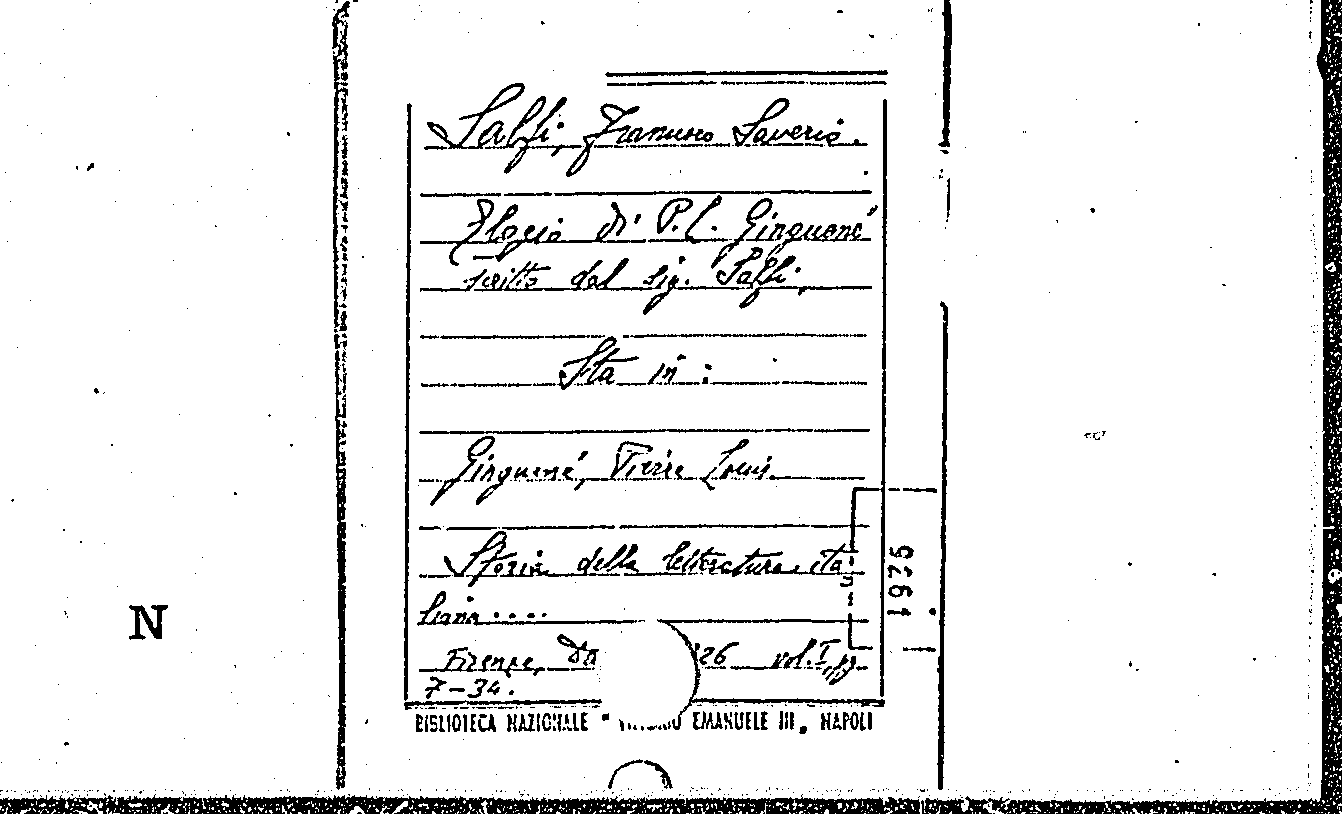 Salfi, Francesco Saverio.
Elogio di P. L. Ginguené
scritto dal sig. Salfi,
Sta in :
Ginguené, Pierre Louis.
Storia della letteratura ita
liana ....
Firenze, Da '26 vol. I, pp.
7-34.
BIBLIOTECA NAZIONALE " EMANUELE III, NAPOLI
1975
N